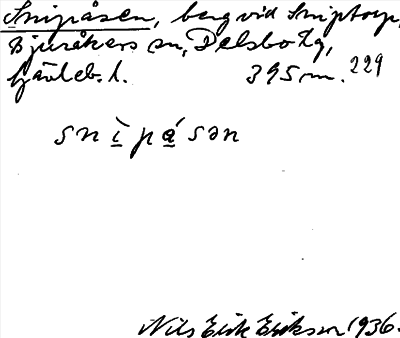 Snipåsen, berg vid Sniptorp,
Bjuråkers sn, Delsbo tg,
Gävlebs. l. 395 m. 229
snìpása̶n
Nils Erik Erikson 1936.